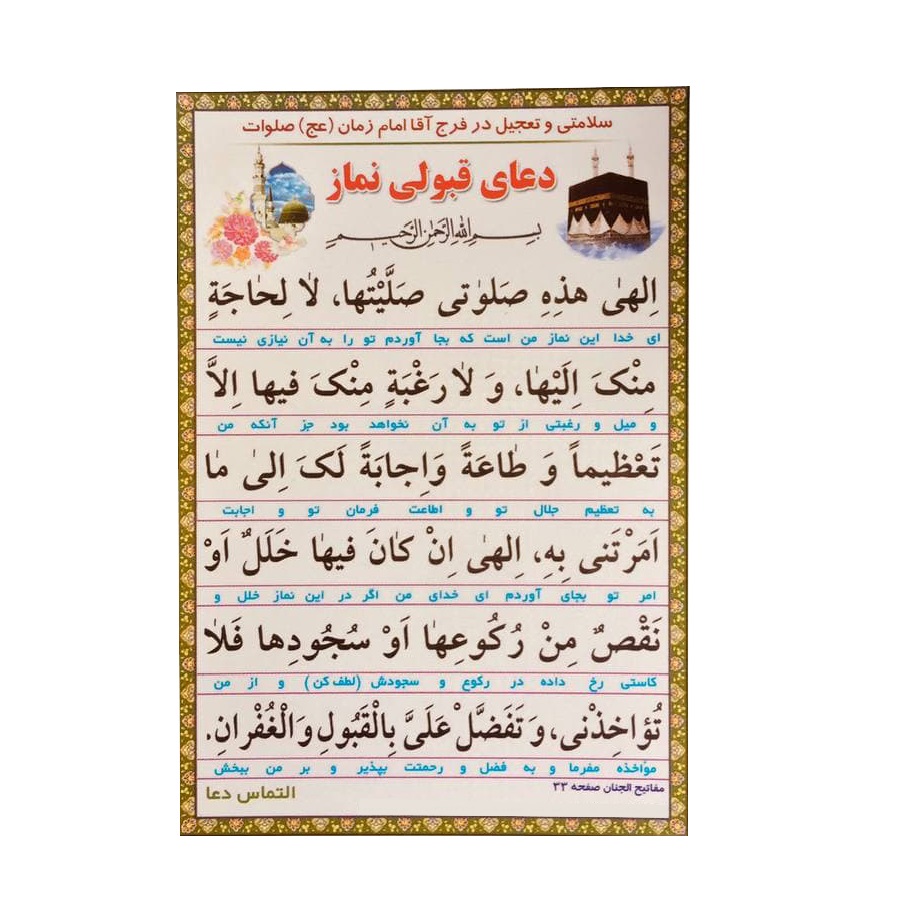 سلامتی و تعجیل در فرج آقا امام زمان (عج) صلوات
دعای قبولی نماز
بسم الله الرحمن الرحیم
اِلهٰی هذِهِ صَلوٰتی صَلَّیْتُها، لاٰ لِحٰاجَةٍ
ای خدا این نماز من است که بجا آوردم تو را به آن نیازی نیست
مِنْکَ اِلَیْهٰا، وَ لاٰ رَغْبَةٍ مِنْکَ فیها اِلاَّ
و میل و رغبتی از تو به آن نخواهد بود جز آنکه من
تَعْظیماً وَ طٰاعَةً وَاِجابَةً لَکَ اِلیٰ مٰا
به تعظیم جلال تو و اطاعت فرمان تو و اجابت
اَمَرْتَنی بِهِ، اِلهٰی اِنْ کٰانَ فیهٰا خَلَلٌ اَوْ
امر تو بجای آوردم ای خدای من اگر در این نماز خلل و
نَقْصٌ مِنْ رُکُوعِهٰا اَوْ سُجُودِها فَلاٰ
کاستی رخ داده در رکوع و سجودش (لطف کن) و از من
تُؤاخِذْنی، وَ تَفَضَّلْ عَلَیَّ بِالْقَبُولِ وَ الْغُفْرانِ.
مؤاخذه مفرما و به فضل و رحمتت بپذیر و بر من ببخش
مفاتیح الجنان صفحه ۳۳
التماس دعا